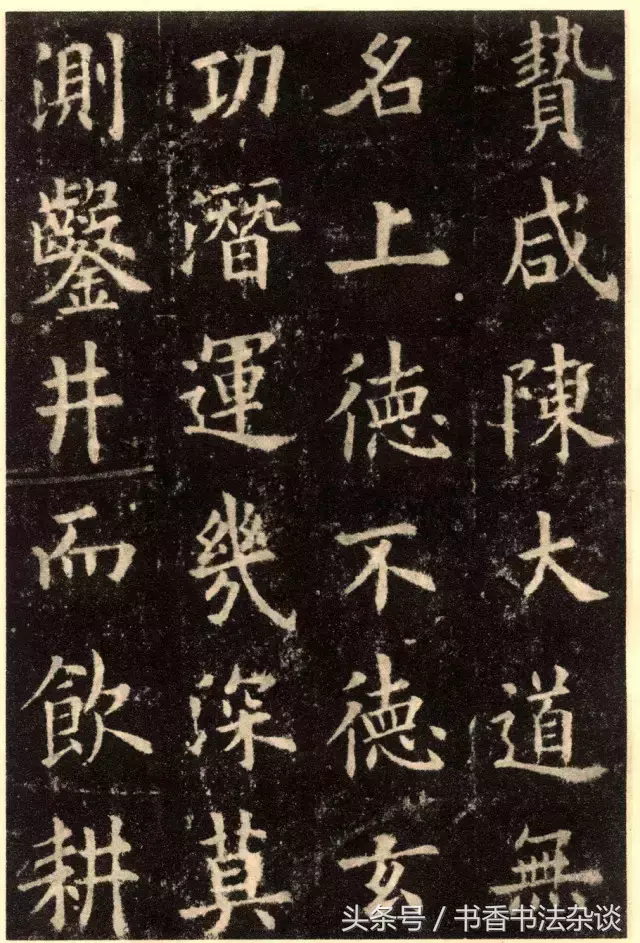 贄咸陳大道無
名上徳不徳玄
功潛運幾深莫
測鑿井而飲耕
头条号 / 书香书法杂谈